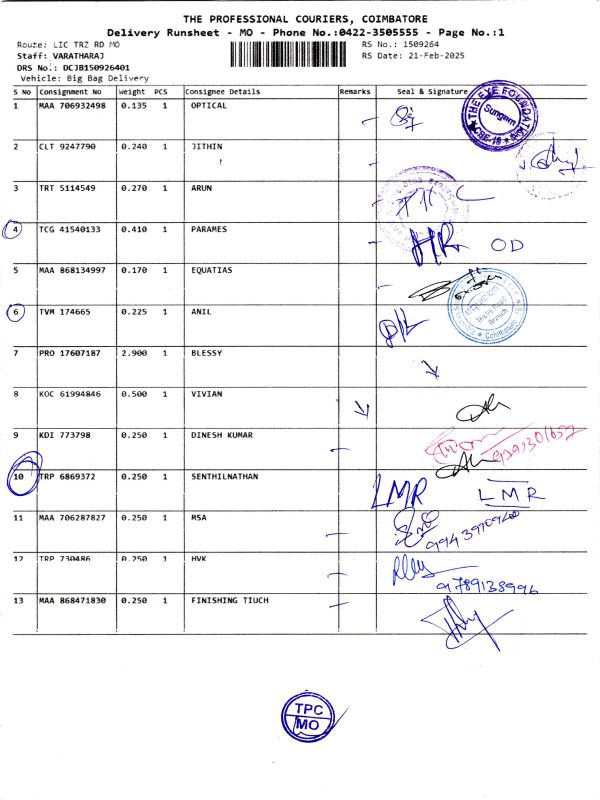 THE PROFESSIONAL COURIERS, COIMBATORE
Delivery Runsheet - MO - Phone No.:0422-3505555 - Page No.:1
Route: LIC TRZ RD MO RS No.: 1509264
Staff: VARATHARAJ RS Date: 21-Feb-2025
DRS No.: DCJB150926401
Vehicle: Big Bag Delivery
S No Consignment No Weight PCS Consignee Details Remarks Seal & Signature
1 MAA 706932498 0.135 1 OPTICAL
THE EYE FOUNDATION
Sungam
2 CLT 9247790 0.240 1 JITHIN
3 TRT 5114549 0.270 1 ARUN
4 TCG 41540133 0.410 1 PARAMES
HR OD
5 MAA 868134997 0.170 1 EQUATIAS
Trichy Road
Branch
Coimbatore
6 TVM 174665 0.225 1 ANIL
7 PRO 17607187 2.900 1 BLESSY
8 KOC 61994846 0.500 1 VIVIAN
9 KDI 773798 0.250 1 DINESH KUMAR
10 TRP 6869372 0.250 1 SENTHILNATHAN LMR LMR
11 MAA 706287827 0.250 1 MSA
12 TRP 730486 0.250 1 HVK
9789138996
13 MAA 868471830 0.250 1 FINISHING TIUCH
TPC
MO